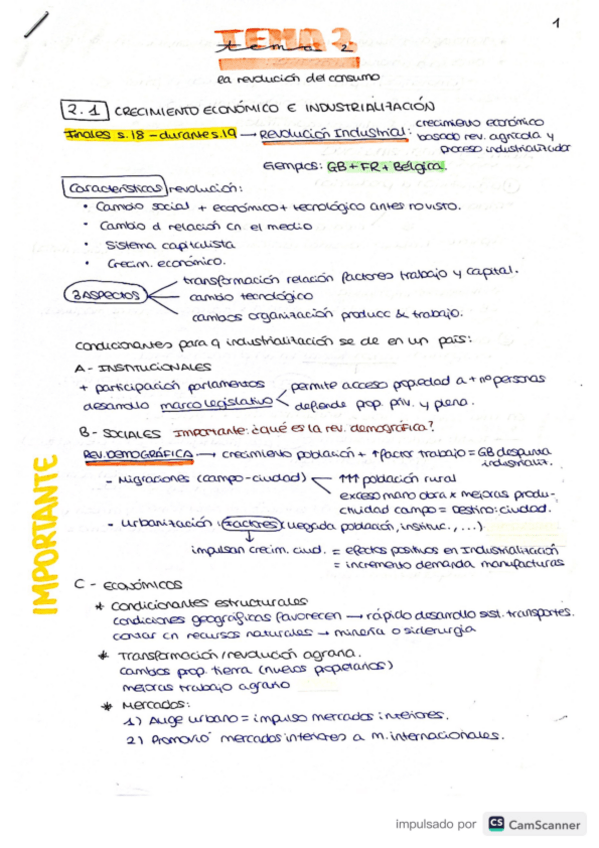 1
TEMA 2
tema 2
la revolución del consumo
2.1 CRECIMIENTO ECONÓMICO E INDUSTRIALIZACIÓN
Finales s.18 - durante s.19 → Revolución Industrial: crecimiento económico
basado rev. agrícola y
proceso industrializador
Ejemplos: GB + FR + Bélgica.
Características revolución:
• Cambio social + económico + tecnológico antes no visto.
• Cambio d relación cn el medio
• Sistema capitalista
• Crecim. económico.
3 ASPECTOS
transformación relación factores trabajo y capital.
cambio tecnológico
cambios organización producc & trabajo.
Condicionantes para q industrialización se de en un país:
A - INSTITUCIONALES
+ participación parlamentos
desarrollo marco legislativo
permite acceso propiedad a + nº personas
defiende prop. priv. y plena.
B - SOCIALES Importante: ¿qué es la rev. demográfica?
REV. DEMOGRÁFICA → crecimiento población + ↑ factor trabajo = GB despunta
industrializ.
- Migraciones (campo - ciudad)
↑↑↑ población rural
exceso mano obra x mejoras produ-
ctividad campo = Destino: ciudad.
- Urbanización: factores (llegada población, instituc., ...)
↓
impulsan crecim. ciud. = efectos positivos en Industrialización
= incremento demanda manufacturas
IMPORTANTE
C - ECONÓMICOS
* Condicionantes estructurales
condiciones geográficas favorecen → rápido desarrollo sist. transportes.
contar cn recursos naturales → minería o siderurgia
* Transformación/revolución agraria.
cambios prop. tierra (nuevos propetarios)
mejoras trabajo agrario
* Mercados:
1) Auge urbano = impulso mercados interiores.
2) Promovió mercados interiores a m. internacionales.
impulsado por CS CamScanner